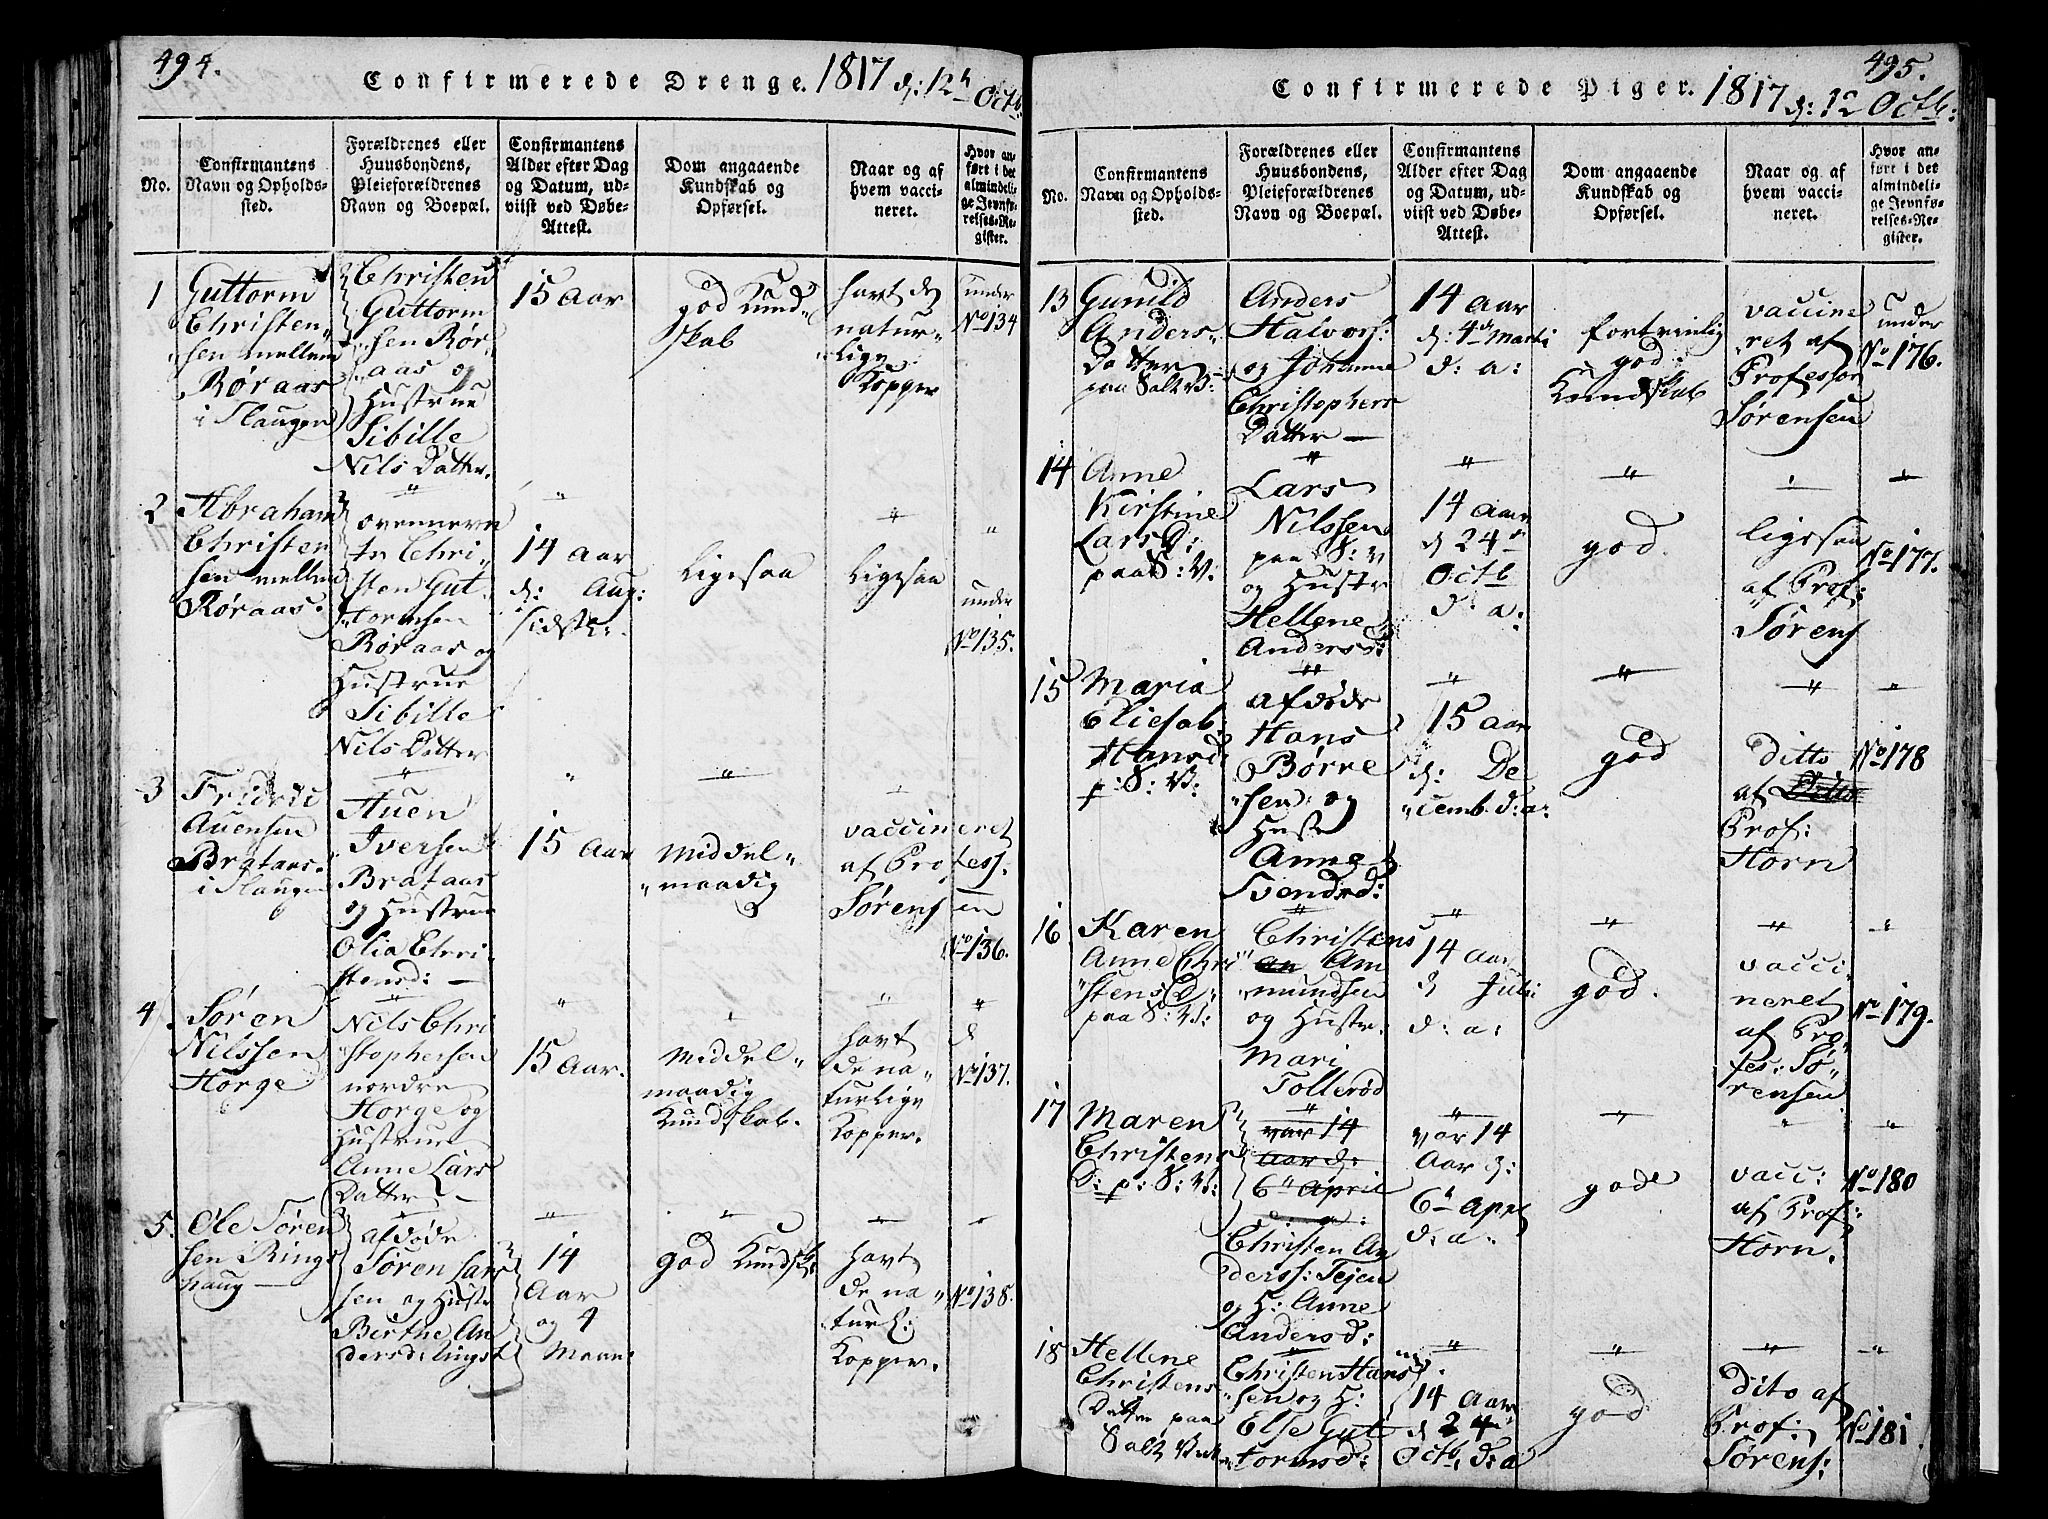 494.
Confirmerede Drenge. 1817 d: 12te Octb:
No.
Confirmantens
Navn og Opholds-
sted.
Forældrenes eller
Huusbondens,
Pleieforældrenes
Navn og Boepæl.
Confirmantens
Alder efter Dag
og Datum, ud-
viist ved Døbe-
Attest.
Dom angaaende
Kundskab og
Opførsel.
Naar og af
hvem vacci-
neret.
Hvor an-
ført i det
almindeli-
ge Jevnfø-
relses-Re-
gister.
1
Guttorm
Christen„
„sen mellem
Røraas
i Slaugen
Christen
Guttorm
„sen Rør„
aas og
Hustrue
Sibille
Nils Datter.
15 Aar
god Kund„
skab
havt de
natur„
„lige
Kopper
under
No 134
2
Abraham
Christen
sen mellem
Røraas.
ovennevn
te Chri„
sten Gut„
„tormsen
Røraas og
Hustrue
Sibille
Nils Datter
14 Aar
d: Aug:
sidstl:
Ligesaa
Ligesaa
under
No 135.
3
Fridric
Auensen
Brataas.
i Slaugen
Auen
Iversen
Brataas
og Hustrue
Olia Chri„
stensd: —
15 Aar
Middel„
„maadig
vaccineret
af Profess:
Sørensen
No 136.
4.
Søren
Nilssen
Horge
Nils Chri
„stophersen
nordre
Horge og
Hustrue
Anne Lars
Datter —
15 Aar.
Middel„
maadig
Kundskab.
havt
de na„
turlige
Kopper.
No 137.
5.
Ole Søren
sen Rings
haug —
afdøde
Søren Lars
sen og Huste
Birthe An
dersd:
14
Aar
og 4
Maan:
god Kundsk:
havt
de na„
turl:
Kopper.
No 138.
495.
Confirmerede Piger. 1817 d: 12 Octb:
No.
Confirmantens
Navn og Opholds-
sted.
Forældrenes eller
Huusbondens,
Pleieforældrenes
Navn og Boepæl.
Confirmantens
Alder efter Dag
og Datum, ud-
viist ved Døbe-
Attest.
Dom angaaende
Kundskab og
Opførsel.
Naar og af
hvem vacci-
neret.
Hvor an-
ført i det
almindeli-
ge Jevnfø-
relses-Re-
gister.
13
Gunild
Anders„
Datter
paa Salt V:
Anders
Halvors:
og Johanne
Christophers
Datter —
14 Aar
d: 4de Marti
d: a:
fortrinlig
god
Kundskab
vaccine
ret af
Professor
Sørensen
under
No 176.
14
Anne
Kirstine
Lars D:
paa S: V.
Lars
Nilssen
paa S: V
og Hustr
Hellene
Andersd:
14 Aar
d 24de
Octb
d: a:
god.
ligesaa
af Prof:
Sørens
No 177.
15
Maria
Eliesab
Hansd.
p: S: V:
afdøde
Hans
Børre
„sen: og
Hust
Anne
Svendsd:
15 Aar
d: De
„cemb. d: a:
god
ditto
af Ditto
Prof:
Horn
No 178
16
Karen
Anne Chri
„stens D:
paa S: V:
Christens
an Am
„mundsen
og Hustr.
Mari
Tollerød
14 Aar
d Juli
d: a:
god.
vacci
neret
af Pro„
fes: Sø„
rensen
No 179.
17
Maren
Christens
D: p: S: V:
var 14
Aar d:
6te April
a:
Christen An
derss: Tejen
og H: Anne
Andersd:
var 14
Aar d:
6te Apr
d: a:
gode
vacc:
af Prof:
Horn.
No 180
18
Hellene
Christens
Datter paa
Salt Værk
Christen Hans
sen og H:
Else Gut
„tormsd:
14 Aar
d 24
Octb. d: a
god
dito af
Prof:
Sørens:
No 181